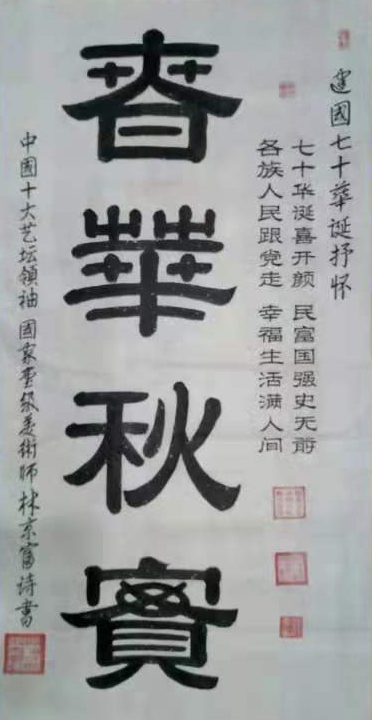 建國七十華誕抒怀
七十华诞喜开颜 民富国强史无前
各族人民跟党走 幸福生活满人间
春華秋實
中國十大艺坛領袖 國家壹级美術師 林京富诗書